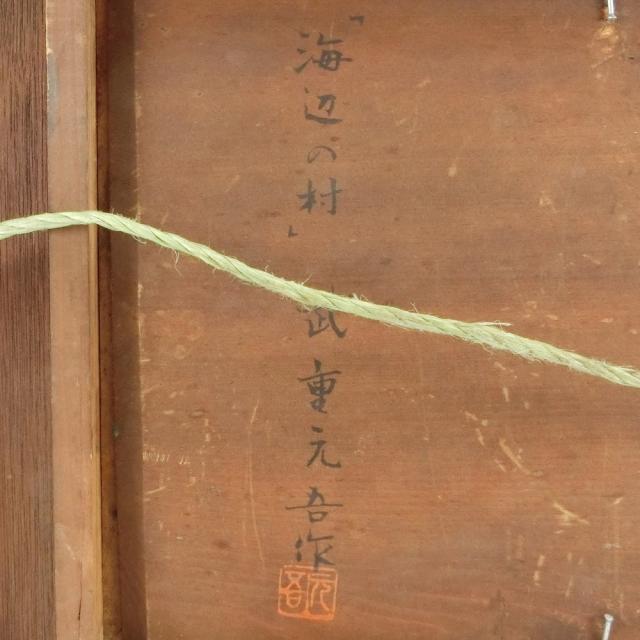 「海辺の村」武重元吾作
元吾